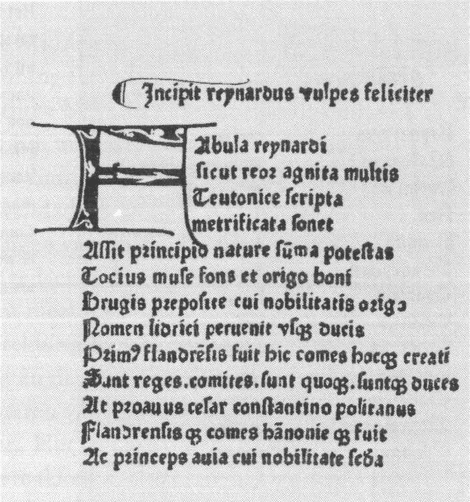 Incipit reynardus vulpes feliciter
FAbula reynardi
sicut reor agnita multis
Teutonice scripta
metrificata sonet
Assit principio nature sūma potestas
Tocius muse fons et origo boni
Brugis preposite cui nobilitatis origo
Nomen lidrici peruenit vsqꝫ ducis
Primꝰ flandrēsis fuit hic comes hocqꝫ creati
Sunt reges.comites.sunt quoqꝫ.suntqꝫ duces
At proauus cesar constantino politanus
Flandrensis qꝫ comes hānonie qꝫ fuit
Ac princeps auia cui nobilitate scđa